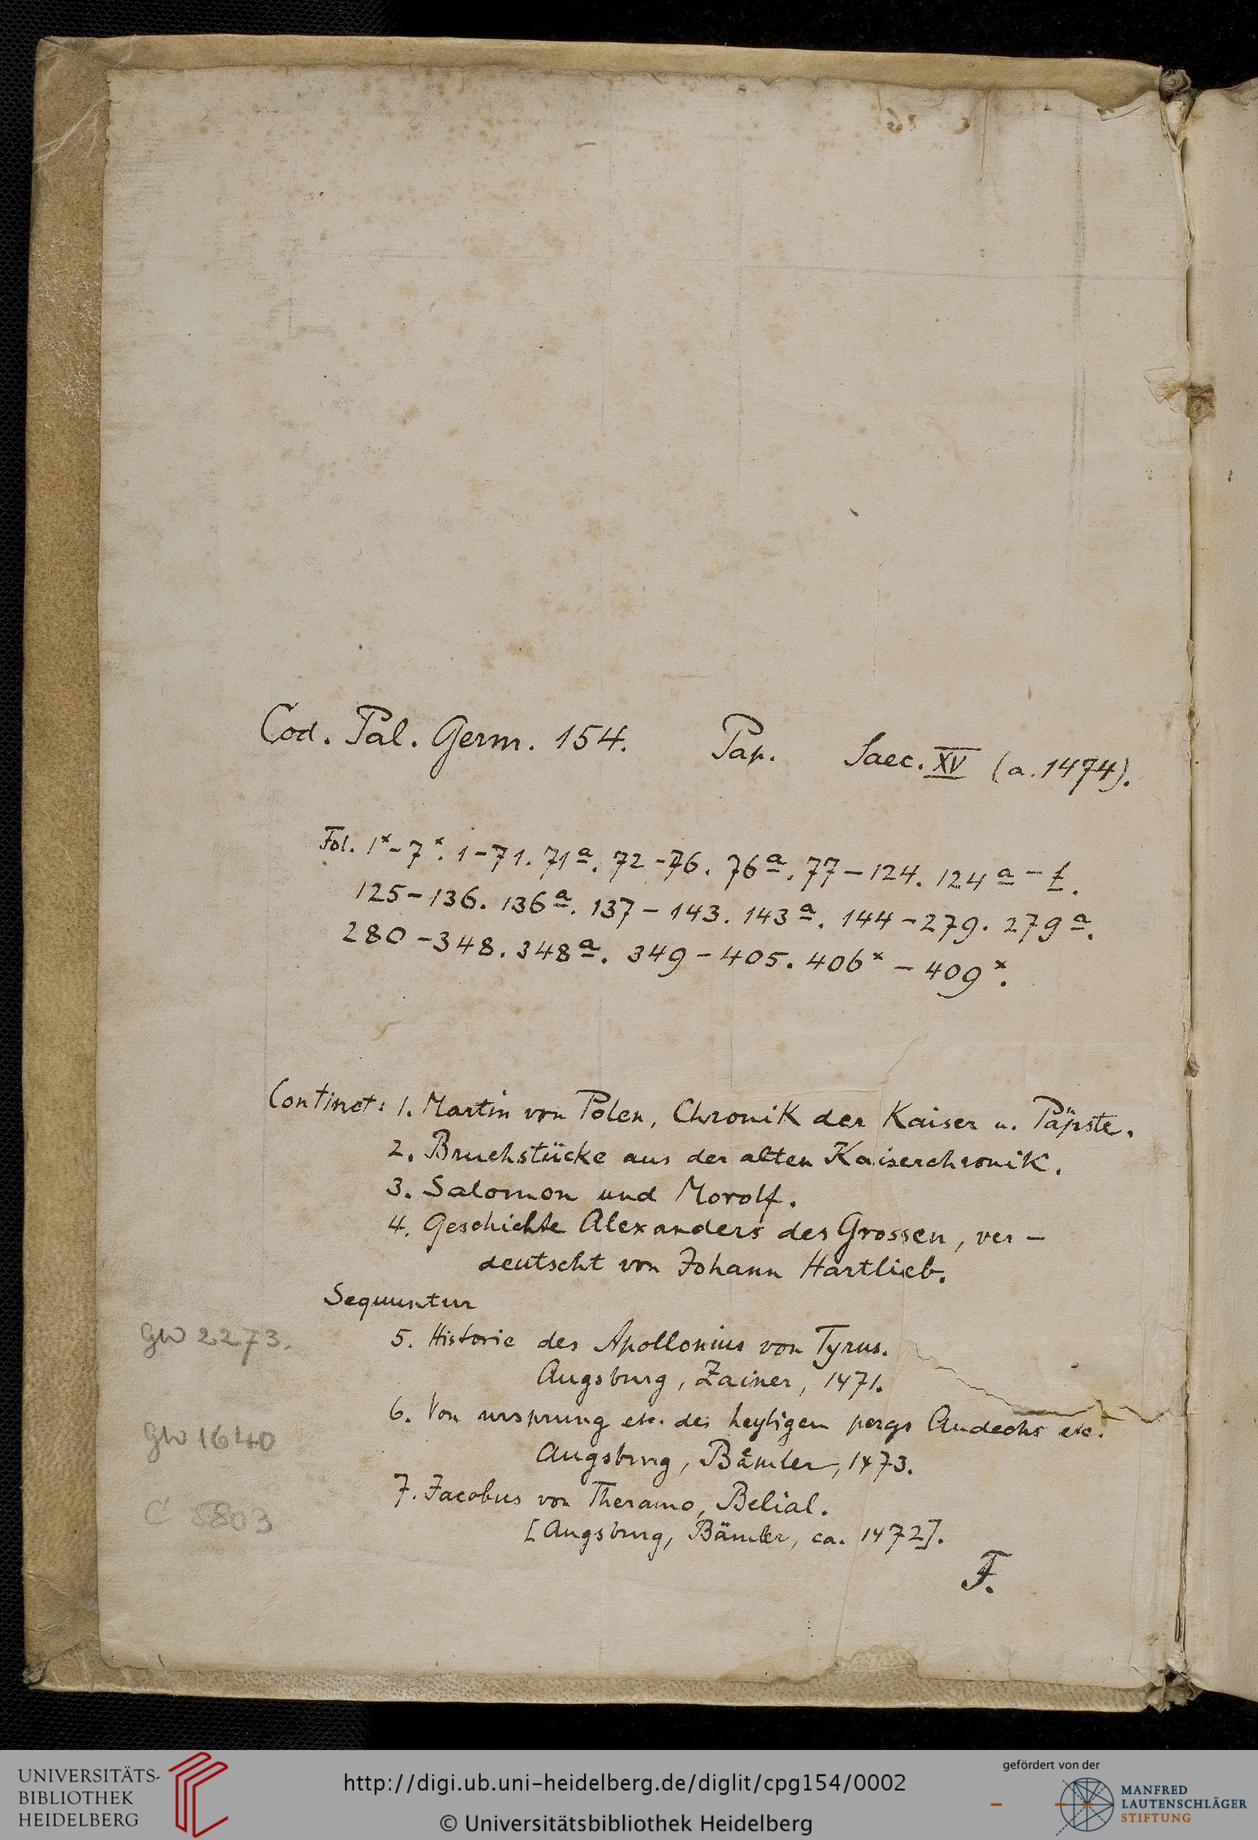 Cod. Pal. Germ. 154. Pap. Saec. XV (a. 1474).
Fol. 1x-7x. 1-71. 71a. 72-76. 76a. 77-124. 124a-f.
125-136. 136a. 137-143. 143a. 144-279. 279a.
280-348. 348a. 349-405. 406x-409x.
Continet: 1. Martin von Polen, Chronik der Kaiser u. Päpste.
2. Bruchstücke aus der alten Kaiserchronik.
3. Salomon und Morolf.
4. Geschichte Alexanders des Grossen, ver-
deutscht von Johann Hartlieb.
Sequuntur
GW 2273.
5. Historie des Apollonius von Tyrus.
Augsburg, Zainer, 1471.
6. Von ursprung etc. des heyligen pergs Andechs etc.
GW 1640
Augsburg, Bämler, 1473.
7. Jacobus von Theramo, Belial.
C 5803
[Augsburg, Bämler, ca. 1472].
F.
UNIVERSITÄTS-
BIBLIOTHEK
HEIDELBERG
http://digi.ub.uni-heidelberg.de/diglit/cpg154/0002
© Universitätsbibliothek Heidelberg
gefördert von der
MANFRED
LAUTENSCHLÄGER
STIFTUNG